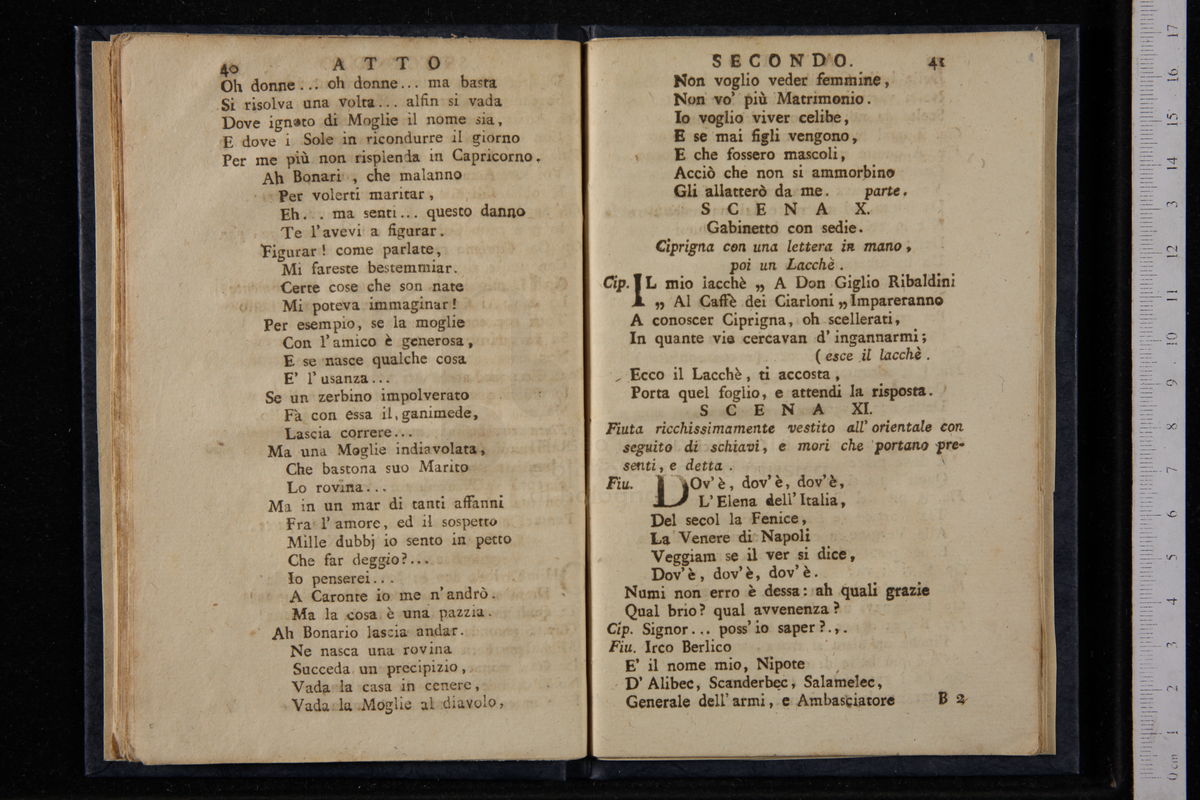 40 ATTO
Oh donne... oh donne... ma basta
Si risolva una volta... alfin si vada
Dove ignoto di Moglie il nome sia,
E dove i Sole in ricondurre il giorno
Per me più non risplenda in Capricorno.
Ah Bonari , che malanno
Per volerti maritar,
Eh. . ma senti... questo danno
Te l'avevi a figurar.
Figurar! come parlate,
Mi fareste bestemmiar.
Certe cose che son nate
Mi poteva immaginar!
Per esempio, se la moglie
Con l'amico è generosa,
E se nasce qualche cosa
E' l'usanza...
Se un zerbino impolverato
Fà con essa il ganimede,
Lascia correre...
Ma una Moglie indiavolata,
Che bastona suo Marito
Lo rovina...
Ma in un mar di tanti affanni
Fra l'amore, ed il sospetto
Mille dubbj io sento in petto
Che far deggio?...
Io penserei...
A Caronte io me n'andrò.
Ma la cosa è una pazzia.
Ah Bonario lascia andar.
Ne nasca una rovina
Succeda un precipizio,
Vada la casa in cenere,
Vada la Moglie al diavolo,
SECONDO. 41
Non voglio veder femmine,
Non vo' più Matrimonio.
Io voglio viver celibe,
E se mai figli vengono,
E che fossero mascoli,
Acciò che non si ammorbino
Gli allatterò da me. parte.
SCENA X.
Gabinetto con sedie.
Ciprigna con una lettera in mano,
poi un Lacchè.
Cip. IL mio lacchè „ A Don Giglio Ribaldini
„ Al Caffè dei Ciarloni „ Impareranno
A conoscer Ciprigna, oh scellerati,
In quante vie cercavan d'ingannarmi;
(esce il lacchè.
Ecco il Lacchè, ti accosta,
Porta quel foglio, e attendi la risposta.
SCENA XI.
Fiuta ricchissimamente vestito all'orientale con
seguito di schiavi, e mori che portano pre-
senti, e detta.
Fiu. DOv'è, dov'è, dov'è,
L'Elena dell'Italia,
Del secol la Fenice,
La Venere di Napoli
Veggiam se il ver si dice,
Dov'è, dov'è, dov'è.
Numi non erro è dessa: ah quali grazie
Qual brio? qual avvenenza?
Cip. Signor... poss'io saper?.,.
Fiu. Irco Berlico
E' il nome mio, Nipote
D'Alibec, Scanderbec, Salamelec,
Generale dell'armi, e Ambasciatore
B 2
0 cm 1 2 3 4 5 6 7 8 9 10 11 12 13 14 15 16 17